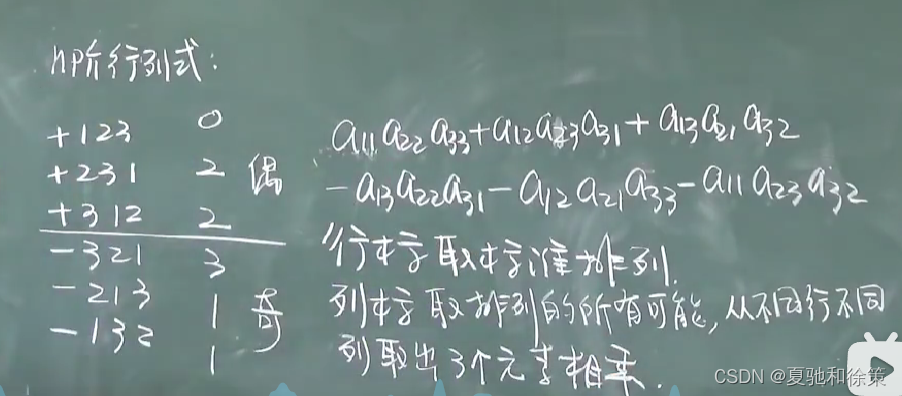 n阶行列式:
+123 0
+231 2 偶
+312 2
-321 3
-213 1 奇
-132 1
a11a22a33+a12a23a31+a13a21a32
-a13a22a31-a12a21a33-a11a23a32
行标取标准排列.
列标取排列的所有可能,从不同行不同
列取出3个元素相乘.
CSDN @夏驰和徐策